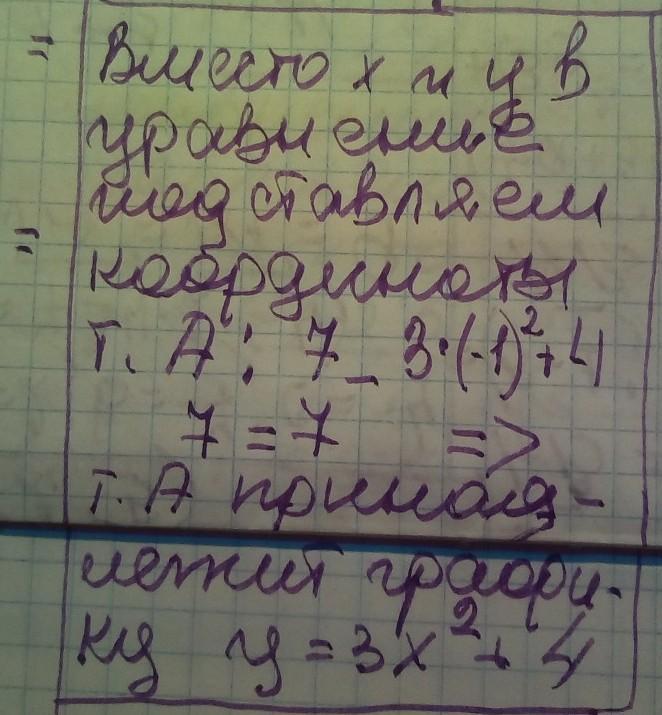 = Вместо х и у в
уравнение
подставляем
= координаты
т. А: 7 _ 3·(-1)²+4
7 = 7 =>
т. А принад-
лежит графи-
ку у = 3х² + 4